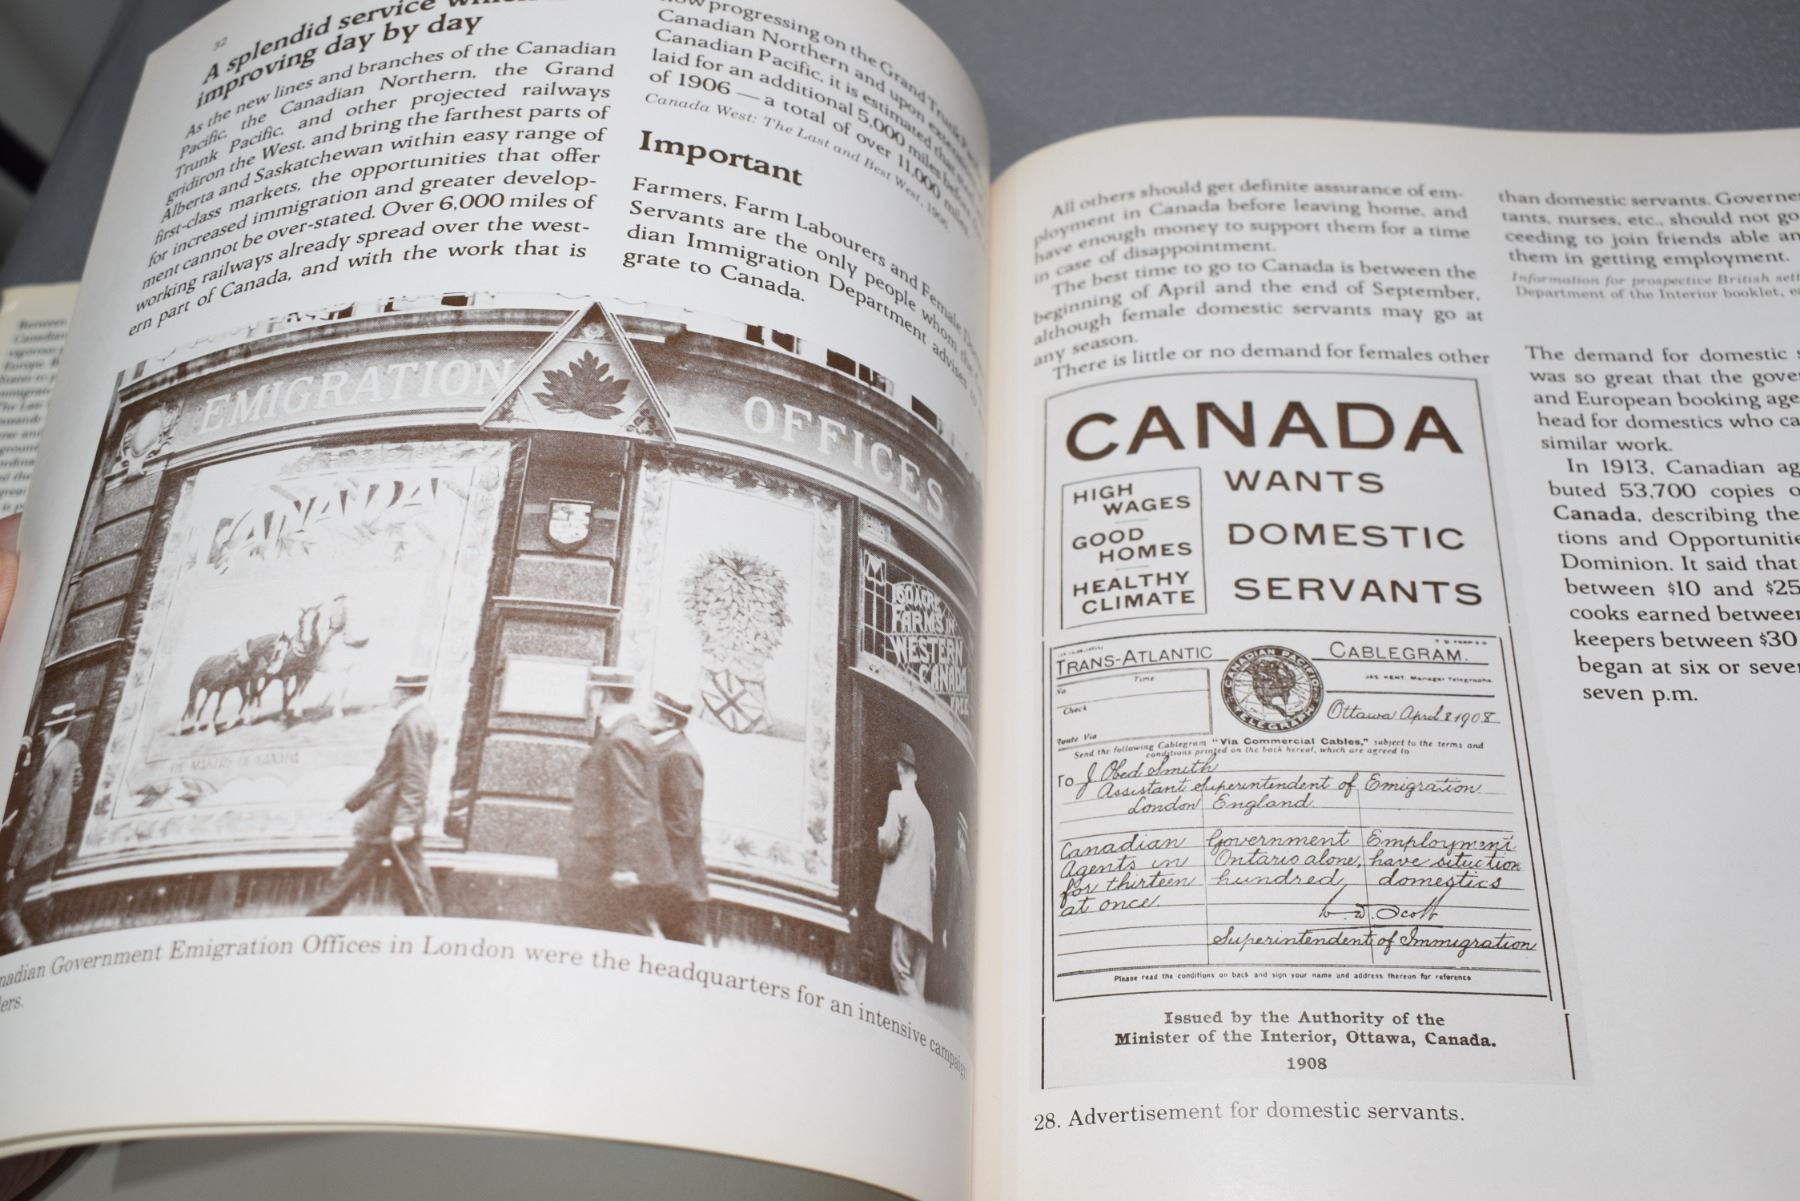 32
A splendid service
improving day by day
As the new lines and branches of the Canadian
Pacific, the Canadian Northern, the Grand
Trunk Pacific, and other projected railways
gridiron the West, and bring the farthest parts of
Alberta and Saskatchewan within easy range of
first-class markets, the opportunities that offer
for increased immigration and greater develop-
ment cannot be over-stated. Over 6,000 miles of
working railways already spread over the west-
ern part of Canada, and with the work that is
now progressing on the Grand Trunk
Canadian Northern and upon
Canadian Pacific, it is estimated that
laid for an additional 5,000 miles before
of 1906 — a total of over 11,000 miles.
Canada West: The Last and Best West, 1906
Important
Farmers, Farm Labourers and Female
Servants are the only people whom the
dian Immigration Department advises to
grate to Canada.
EMIGRATION OFFICES
CANADA
160 ACRE
FARMS IN
WESTERN
CANADA
FREE
nadian Government Emigration Offices in London were the headquarters for an intensive campaign
lers.
All others should get definite assurance of em-
ployment in Canada before leaving home, and
have enough money to support them for a time
in case of disappointment.
The best time to go to Canada is between the
beginning of April and the end of September,
although female domestic servants may go at
any season.
There is little or no demand for females other
CANADA
WANTS
DOMESTIC
SERVANTS
HIGH
WAGES
GOOD
HOMES
HEALTHY
CLIMATE
TRANS-ATLANTIC CABLEGRAM.
CANADIAN PACIFIC TELEGRAPH
JAS. KENT, Manager Telegraphs.
No Time
Check
Route Via
Ottawa April 8 1908
Send the following Cablegram "Via Commercial Cables," subject to the terms and
conditions printed on the back hereof, which are agreed to
To J. Obed Smith
Assistant Superintendent of Emigration
London England
Canadian Government Employment
Agents in Ontario alone, have situation
for thirteen hundred domestics
at once.
W. D. Scott
Superintendent of Immigration
Please read the conditions on back and sign your name and address thereon for reference
Issued by the Authority of the
Minister of the Interior, Ottawa, Canada.
1908
28. Advertisement for domestic servants.
than domestic servants. Governe
tants, nurses, etc., should not go
ceeding to join friends able an
them in getting employment.
Information for prospective British sett
Department of the Interior booklet,
The demand for domestic s
was so great that the gover
and European booking age
head for domestics who ca
similar work.
In 1913, Canadian ag
buted 53,700 copies o
Canada, describing the
tions and Opportunitie
Dominion. It said that
between $10 and $25
cooks earned between
keepers between $30
began at six or seven
seven p.m.